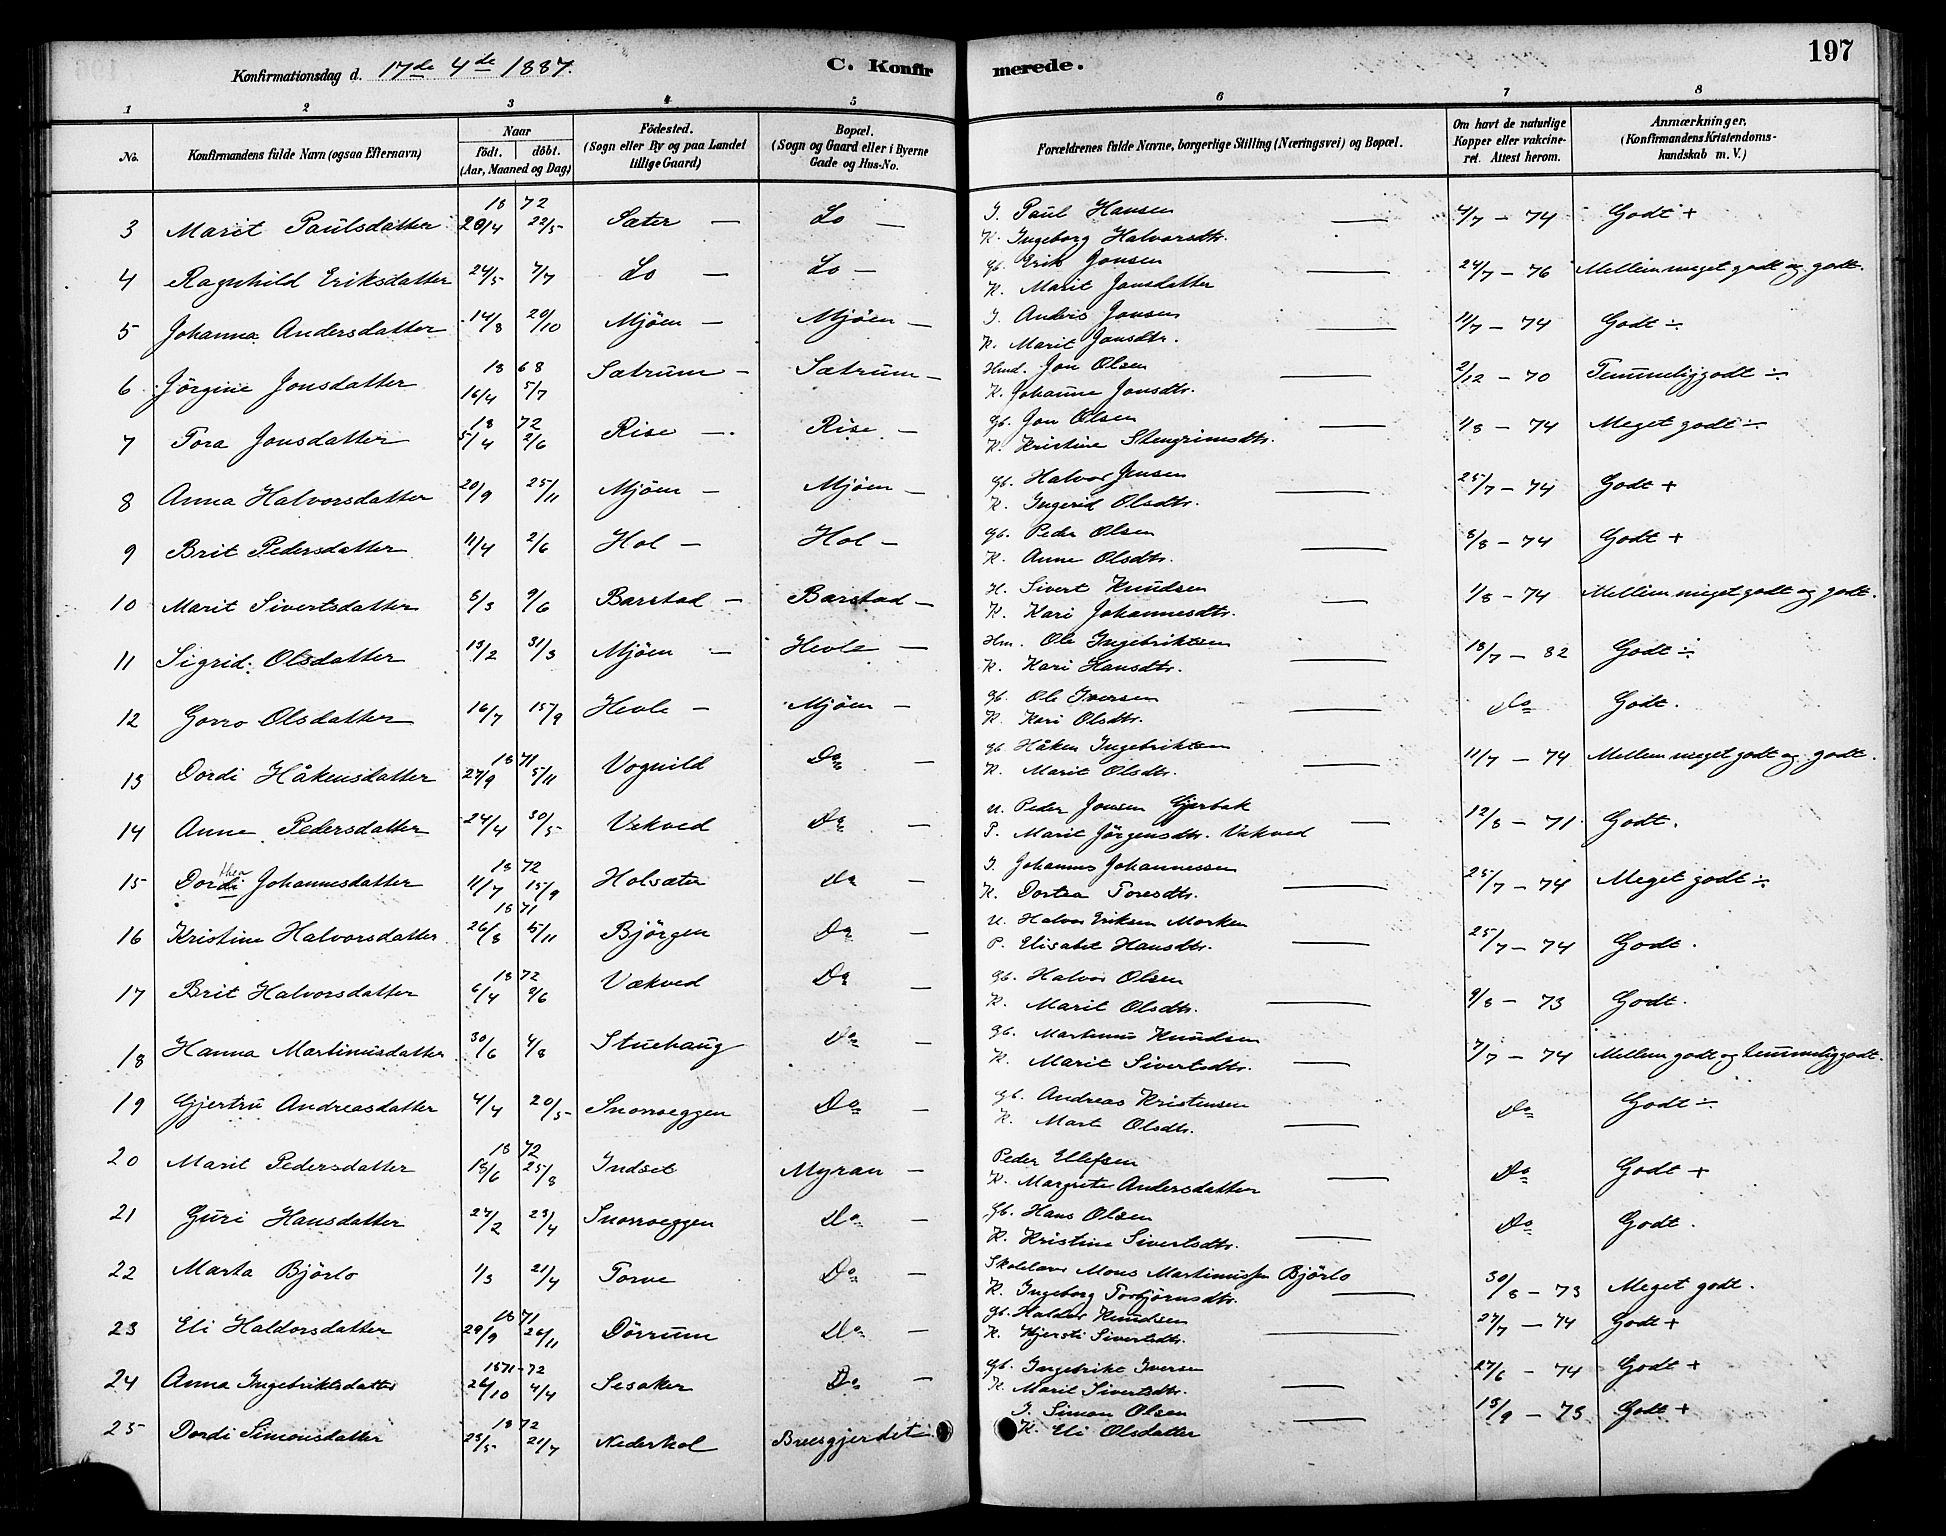 Konfirmationsdag d. 17de 4de 1887.
C. Konfirmerede.
197
1 2 3 4 5 6 7 8
No. Konfirmandens fulde Navn (ogsaa Efternavn) Naar født. døbt. (Aar, Maaned og Dag) Födested. (Sogn eller By og paa Landet tillige Gaard) Bopæl. (Sogn og Gaard eller i Byerne Gade og Hus-No. Forældrenes fulde Navne, borgerlige Stilling (Næringsvei) og Bopæl. Om havt de naturlige Kopper eller vakcineret. Attest herom. Anmærkninger. (Konfirmandens Kristendomskundskab m. V.)
1872
3 Marit Paulsdatter 20/4 22/5 Sæter — Lo — I. Paul Hansen K. Ingeborg Halvorsdtr. — 4/7 - 74 Godt +
4 Ragnhild Eriksdatter 24/5 7/7 Lo — Lo — gb. Erik Jonsen K. Marit Jonsdatter — 24/7 - 76 Mellem meget godt og godt.
5 Johanna Andersdatter 14/8 20/10 Mjöen — Mjöen — I. Anders Jonsen K. Marit Jonsdtr. — 11/7 - 74 Godt ÷
1868
6 Jörgine Jonsdatter 16/4 5/7 Sætrum — Sætrum — Hmd. Jon Olsen K. Johanne Jonsdtr. — 2/12 - 70 Temmelig godt ÷
1872
7 Tora Jonsdatter 5/4 2/6 Rise — Rise — gb. Jon Olsen K. Kristine Stengrimsdtr. — 1/8 - 74 Meget godt ÷
8 Anna Halvorsdatter 20/9 25/11 Mjöen — Mjöen — gb. Halvor Jensen K. Ingerid Olsdtr. — 25/7 - 74 Godt +
9 Brit Pedersdatter 11/4 2/6 Hol — Hol — gb. Peder Olsen K. Anne Olsdtr. — 8/8 - 74 Godt +
10 Marit Sivertsdatter 5/3 9/6 Barstad — Barstad — H. Sivert Knudsen K. Kari Johannesdtr. — 1/8 - 74 Mellem meget godt og godt.
11 Sigrid Olsdatter 13/2 31/3 Mjöen — Hevle — Hm. Ole Ingebriktsen K. Kari Hansdtr. — 18/7 - 82 Godt ÷
12 Gorro Olsdatter 16/7 15/9 Hevle — Mjöen — gb. Ole Iversen K. Kari Olsdtr. — Do Godt.
1871
13 Dordi Håkensdatter 27/9 5/11 Vognild Do — gb. Håken Ingebriktsen K. Marit Olsdtr. — 11/7 - 74 Mellem meget godt og godt.
14 Anne Pedersdatter 24/4 30/5 Vekved Do — U. Peder Jonsen Gjerbak P. Marit Jörgensdtr. Vekved — 12/8 - 71 Godt.
1872
15 Dordi Johannesdatter 11/7 15/9 Holsæter Do — I. Johannes Johannessen K. Dortea Toresdtr. — 25/7 - 74 Meget godt ÷
1871
16 Kristine Halvorsdatter 26/8 5/11 Björgen Do — U. Halvor Eriksen Morken P. Elisabet Hansdtr. — 25/7 - 74 Godt.
1872
17 Brit Halvorsdatter 6/4 9/6 Vækved Do — gb. Halvor Olsen K. Marit Olsdtr. — 9/8 - 73 Godt.
18 Hanna Martinusdatter 30/6 4/8 Stuehaug Do — gb. Martinus Knudsen K. Marit Sivertsdtr. — 7/7 - 74 Mellem godt og temmelig godt.
19 Gjertru Andreasdatter 4/4 20/5 Snoroeggen Do — gb. Andreas Kristensen K. Mart Olsdtr. — Do Godt ÷
1872
20 Marit Pedersdatter 13/6 25/8 Indset Myran — Peder Ellefsen K. Margrete Andersdatter — Do Godt +
21 Guri Hansdatter 27/2 28/4 Snoroeggen Do — Gb. Hans Olsen K. Kristine Sivertsdtr. — Do Godt.
22 Marta Björlo 1/3 21/4 Torve Do — Skolelærer Mons Martinussen Björlo K. Ingeborg Torbjörnsdtr. — 30/8 - 73 Meget godt.
1871
23 Eli Haldorsdatter 29/9 26/11 Dörrum Do — gb. Haldor Knudsen K. Kjersti Sivertsdtr. — 27/7 - 74 Godt +
1871-72
24 Anna Ingebriktsdatter 26/10 4/4 Sesaker Do — gb. Ingebrikt Iversen K. Marit Sivertsdtr. — 27/6 - 74 Godt +
1872
25 Dordi Simonsdatter 23/5 21/7 Nederhol Breesgjerdet I. Simon Olsen K. Eli Olsdatter — 13/9 - 73 Godt +